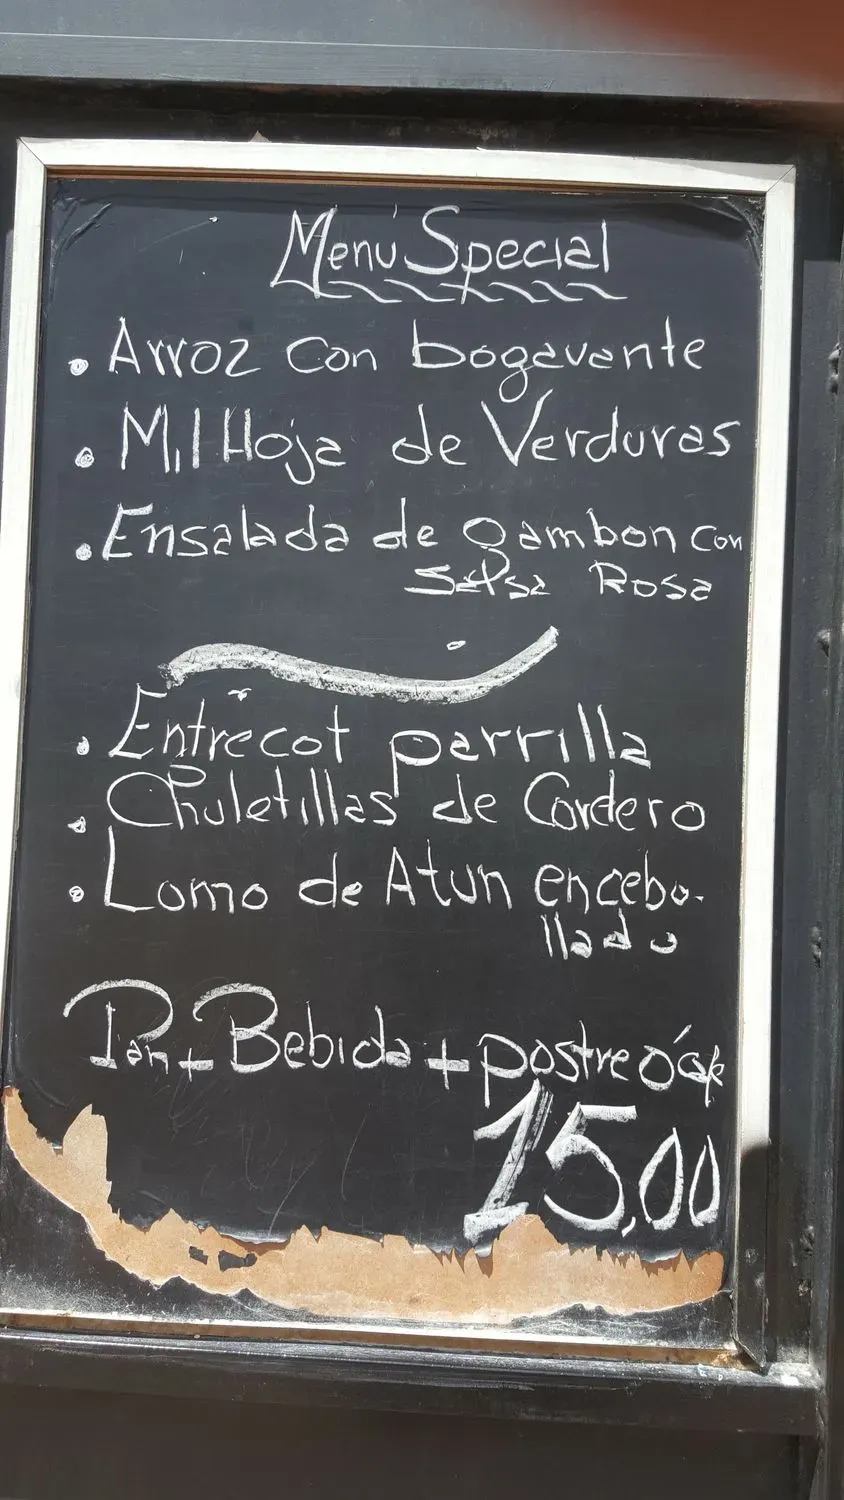 Menú Special
• Arroz con bogavante
• Mil Hoja de Verduras
• Ensalada de gambon con
Salsa Rosa
• Entrecot parrilla
• Chuletillas de Cordero
• Lomo de Atun encebo-
llado
Pan + Bebida + postre o
15,00